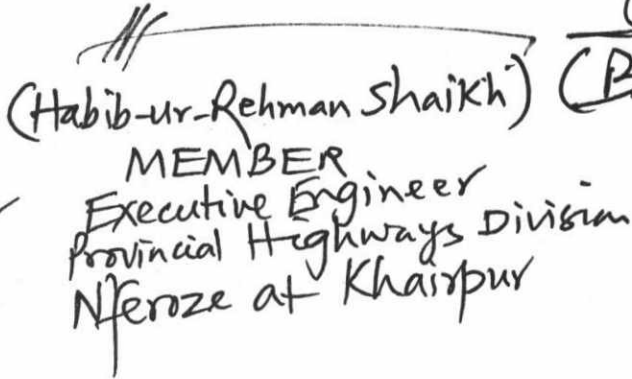 (Habib-ur-Rehman Shaikh) (B
MEMBER
Executive Engineer
Provincial Highways Division
Nferoze at Khairpur